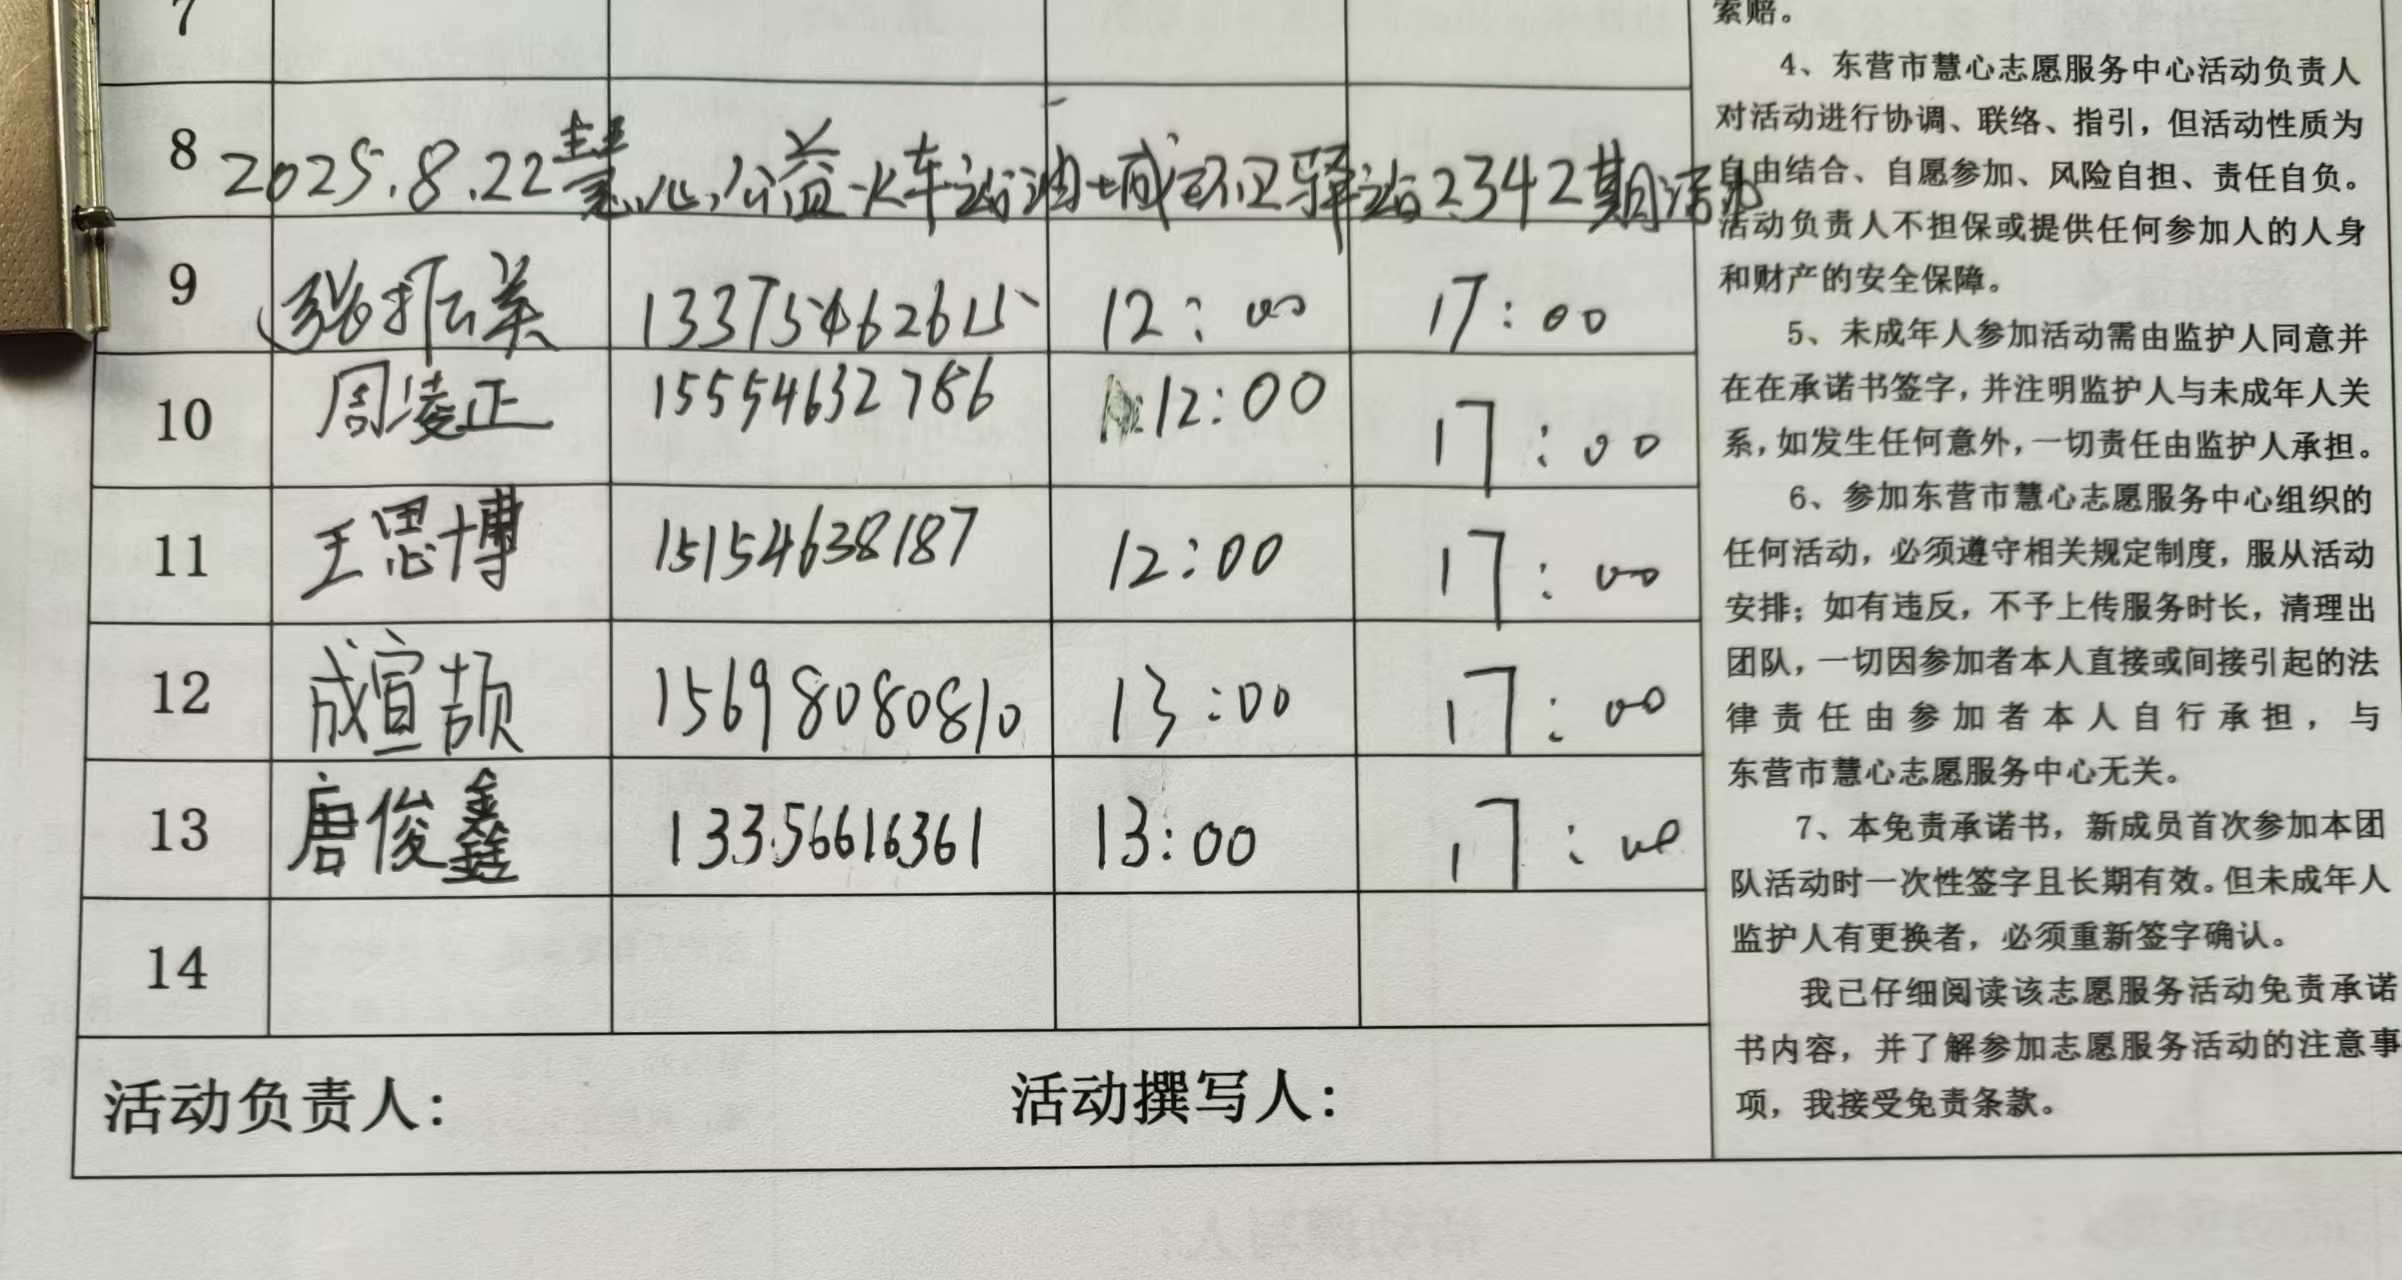 7
8 2025.8.22慧心公益火车站油城环卫驿站2342期活动
9 张振美 13375462615 12:00 17:00
10 周凌正 15554632786 12:00 17:00
11 王思博 15154638187 12:00 17:00
12 成宣颉 15698080810 13:00 17:00
13 唐俊鑫 13356616361 13:00 17:00
14
活动负责人: 活动撰写人:
索赔。
4、东营市慧心志愿服务中心活动负责人
对活动进行协调、联络、指引，但活动性质为
自由结合、自愿参加、风险自担、责任自负。
活动负责人不担保或提供任何参加人的人身
和财产的安全保障。
5、未成年人参加活动需由监护人同意并
在在承诺书签字，并注明监护人与未成年人关
系，如发生任何意外，一切责任由监护人承担。
6、参加东营市慧心志愿服务中心组织的
任何活动，必须遵守相关规定制度，服从活动
安排；如有违反，不予上传服务时长，清理出
团队，一切因参加者本人直接或间接引起的法
律责任由参加者本人自行承担，与
东营市慧心志愿服务中心无关。
7、本免责承诺书，新成员首次参加本团
队活动时一次性签字且长期有效。但未成年人
监护人有更换者，必须重新签字确认。
我已仔细阅读该志愿服务活动免责承诺
书内容，并了解参加志愿服务活动的注意事
项，我接受免责条款。